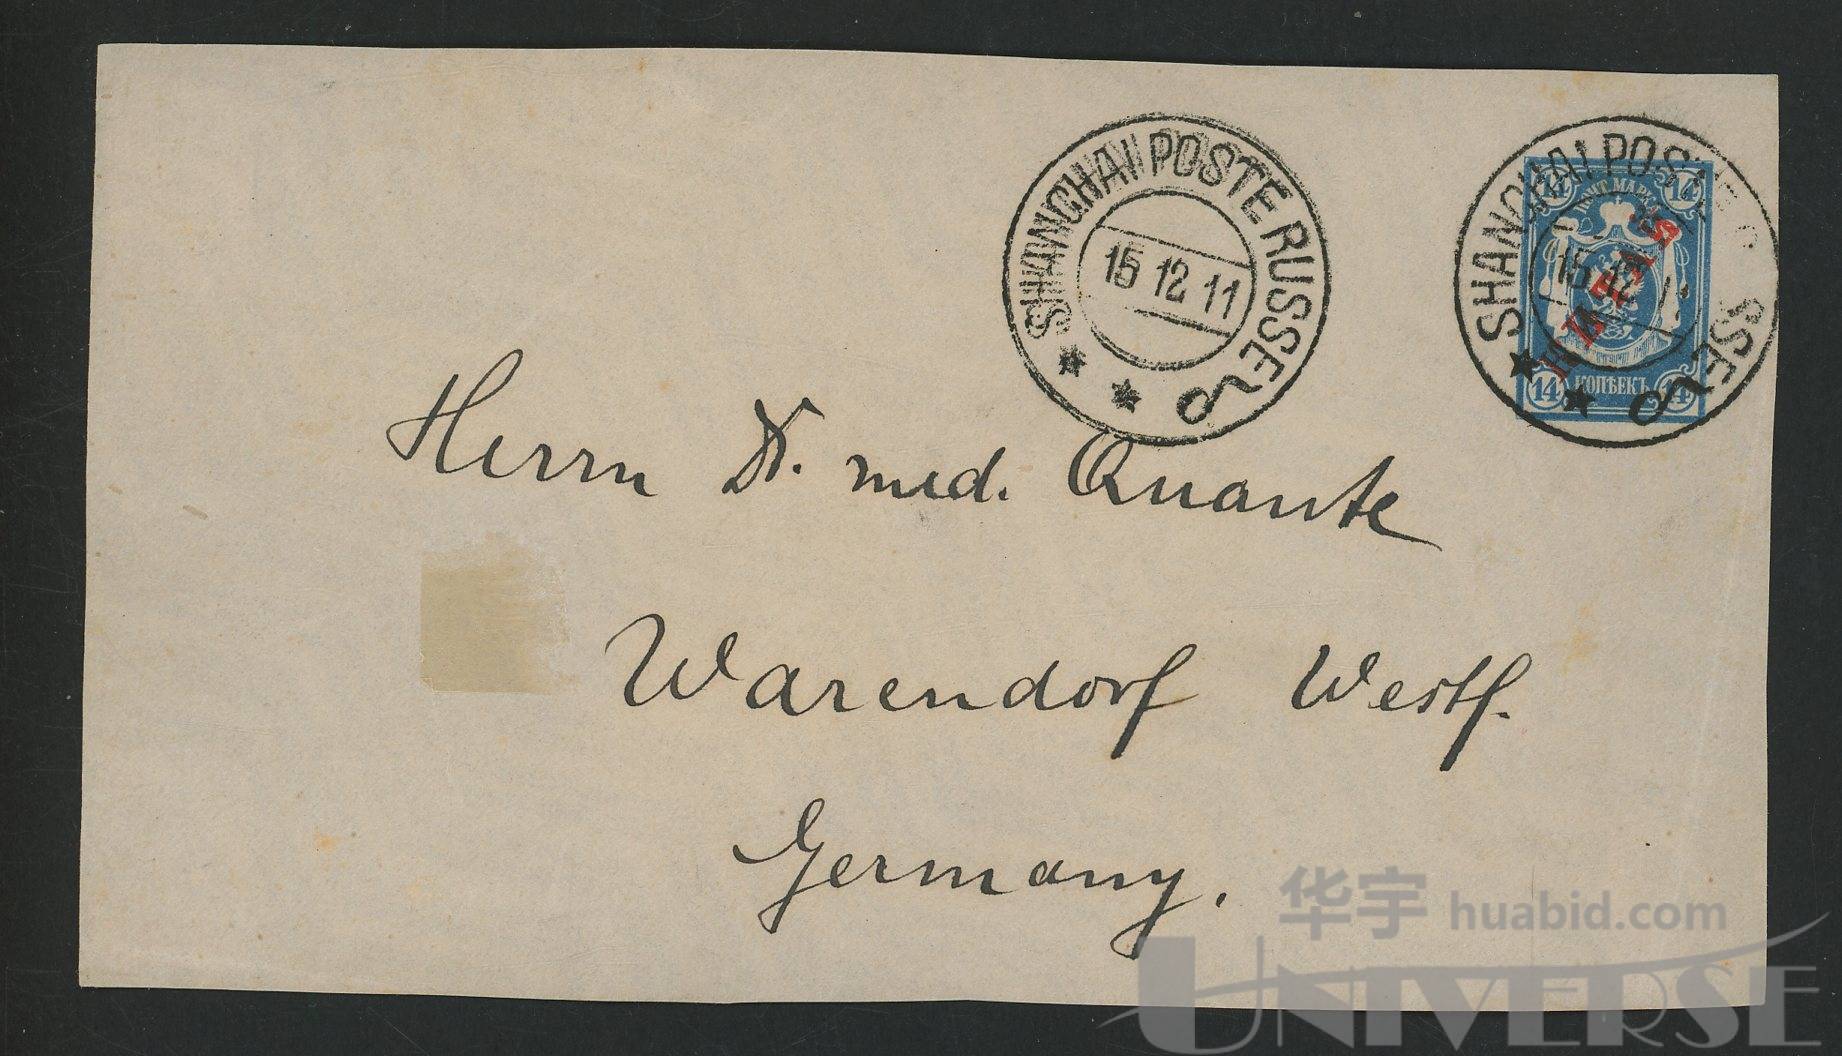 SHANGHAI POSTE RUSSE
15 12 11
SHANGHAI POSTE RUSSE
15 12 1
14 14
ПОЧТ. МАРКА
КИТАЙ
14 КОПѢЕКЪ 14
Herrn Dr. med. Quante
Warendorf Westf.
Germany.
华宇 huabid.com
UNIVERSE